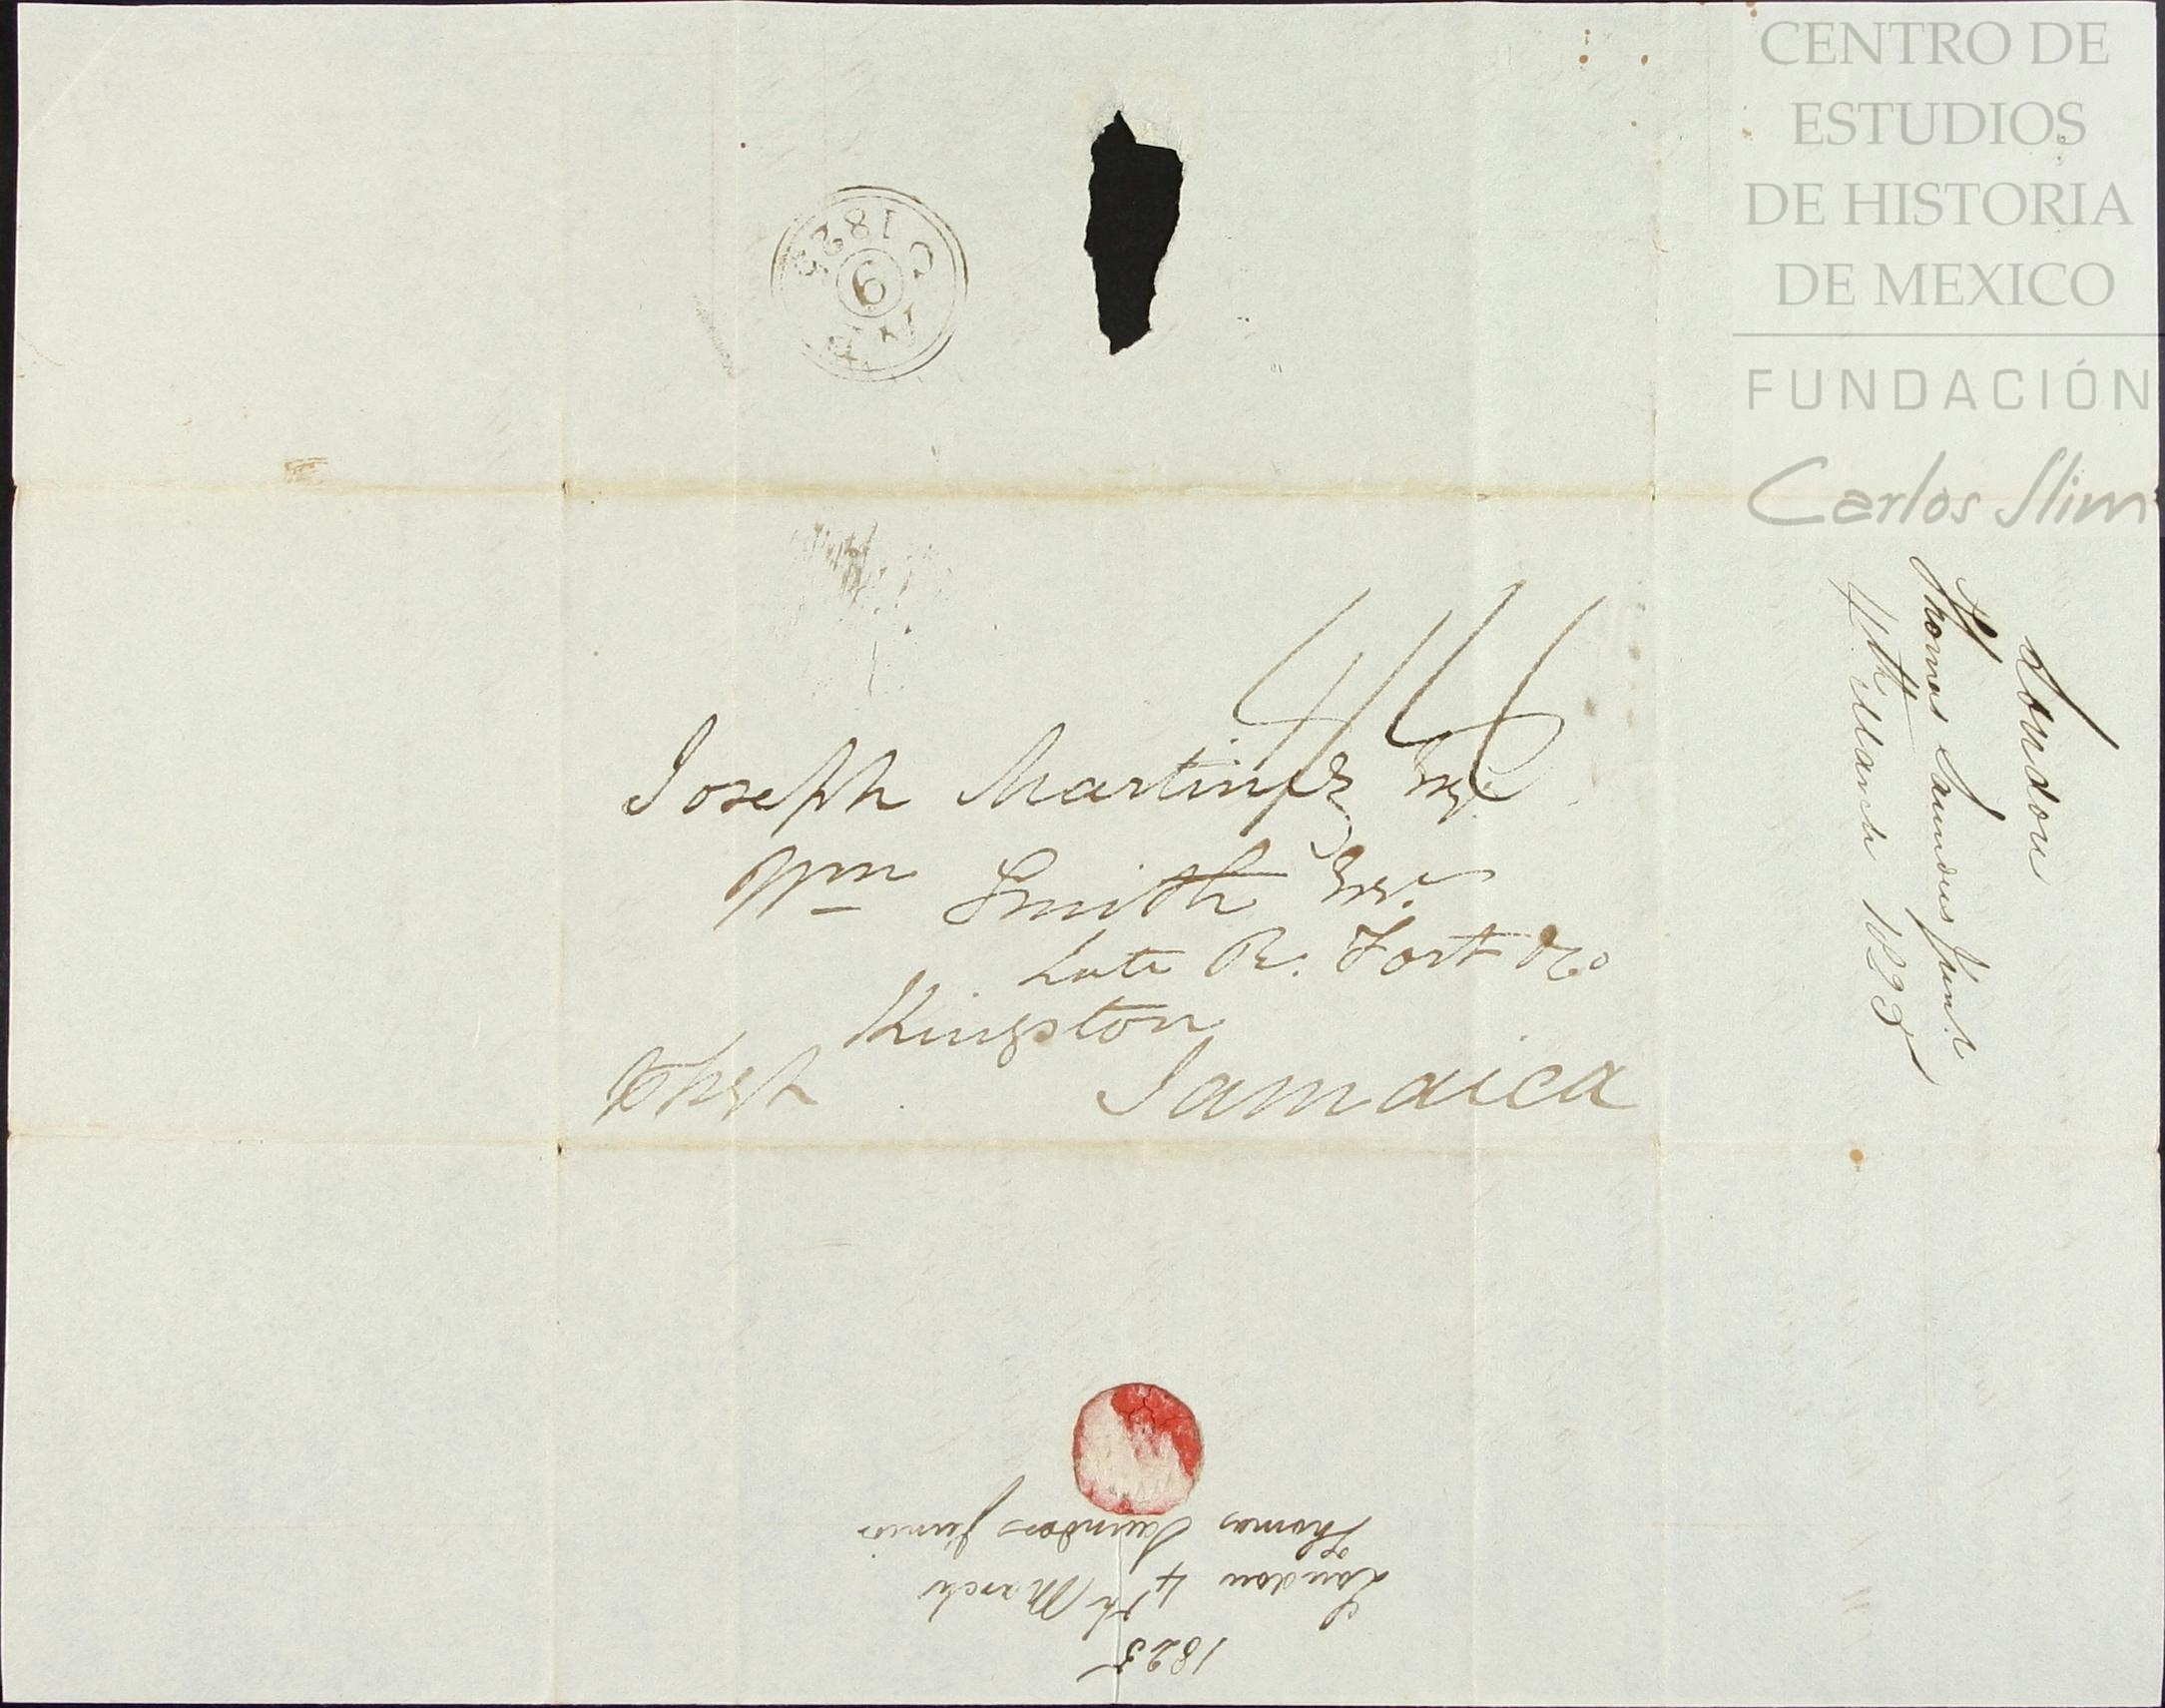 CENTRO DE
ESTUDIOS
DE HISTORIA
DE MEXICO
FUNDACIÓN
Carlos Slim
C 1825
9
Joseph Martin Esqr
Wm Smith Esqr
late R. Fort &Co
Kingston
Jamaica
London
Thomas Saunders Junr
4th March 1825
1825
London 4th March
Thomas Saunders Junior